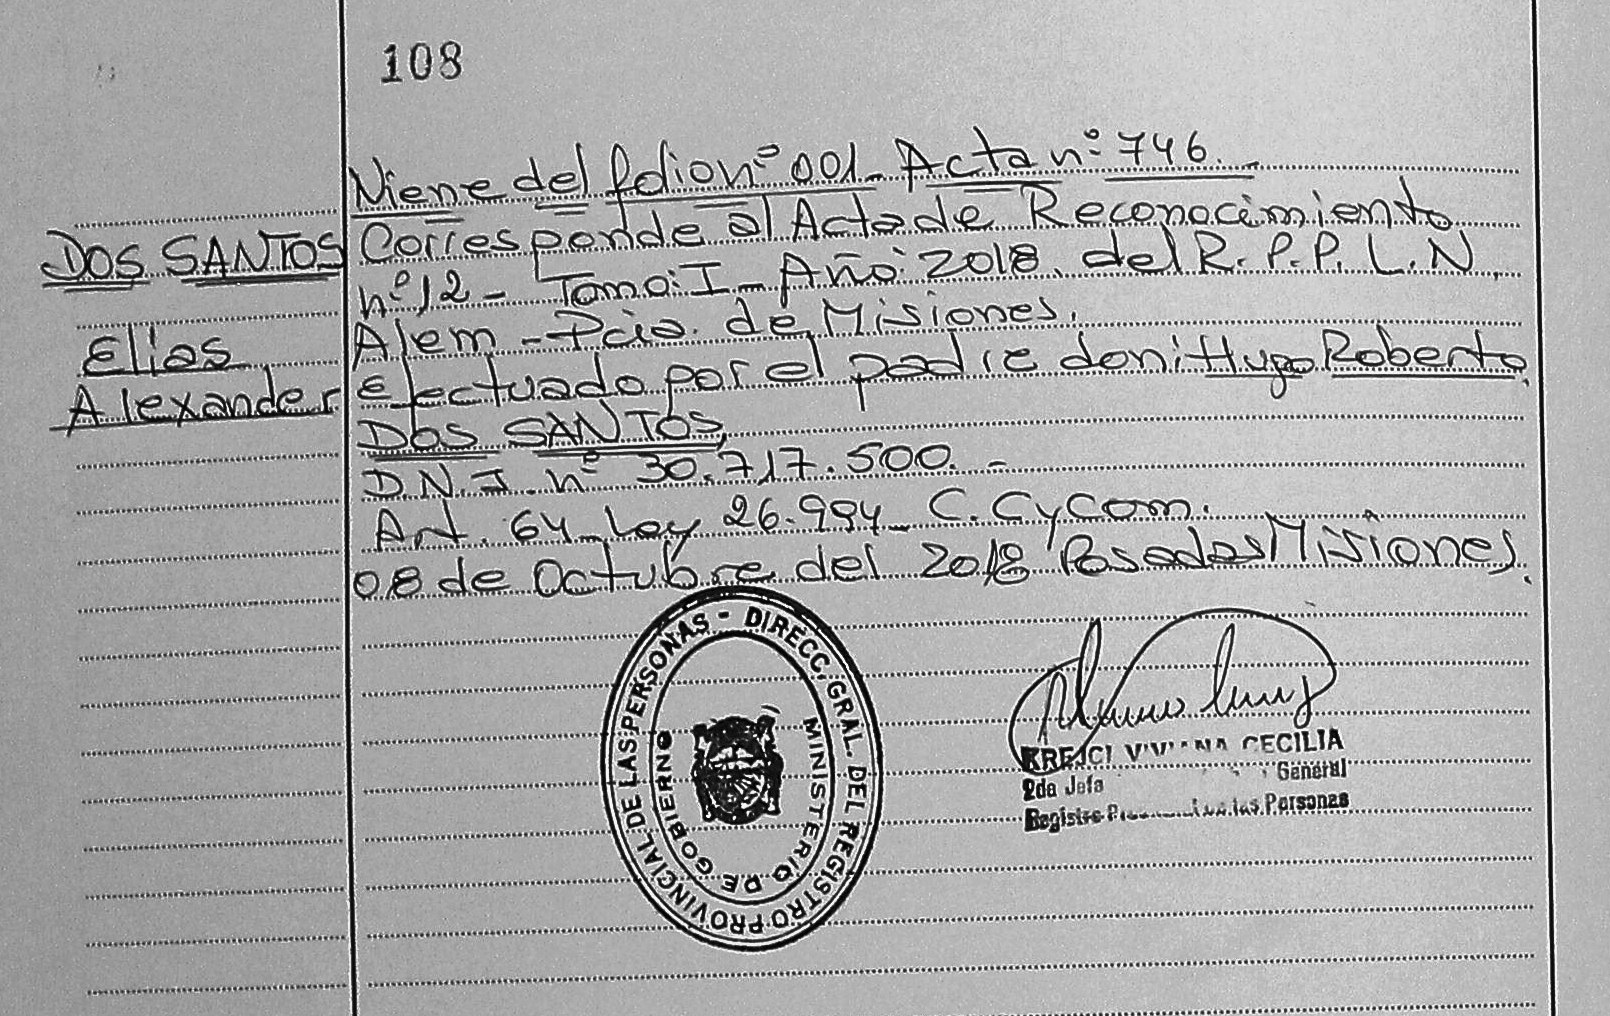 108
Viene del folio nº 001_ Acta nº 746._
DOS SANTOS
Elias
Alexander
Corresponde al Acta de Reconocimiento
nº 12 - Tomo: I _ Año: 2018. del R. P. P. L. N.
Alem - Pcia. de Misiones.
efectuado por el padre don: Hugo Roberto
DOS SANTOS,
D.N.I. nº 30.717.500. -
Art. 64_ Ley 26.994_ C. C y Com.
08 de Octubre del 2018 Posadas Misiones.
DIRECC. GRAL. DEL REGISTRO PROVINCIAL DE LAS PERSONAS -
MINISTERIO DE GOBIERNO
KREJCI VIVIANA CECILIA
2da Jefa General
Registro de las Personas